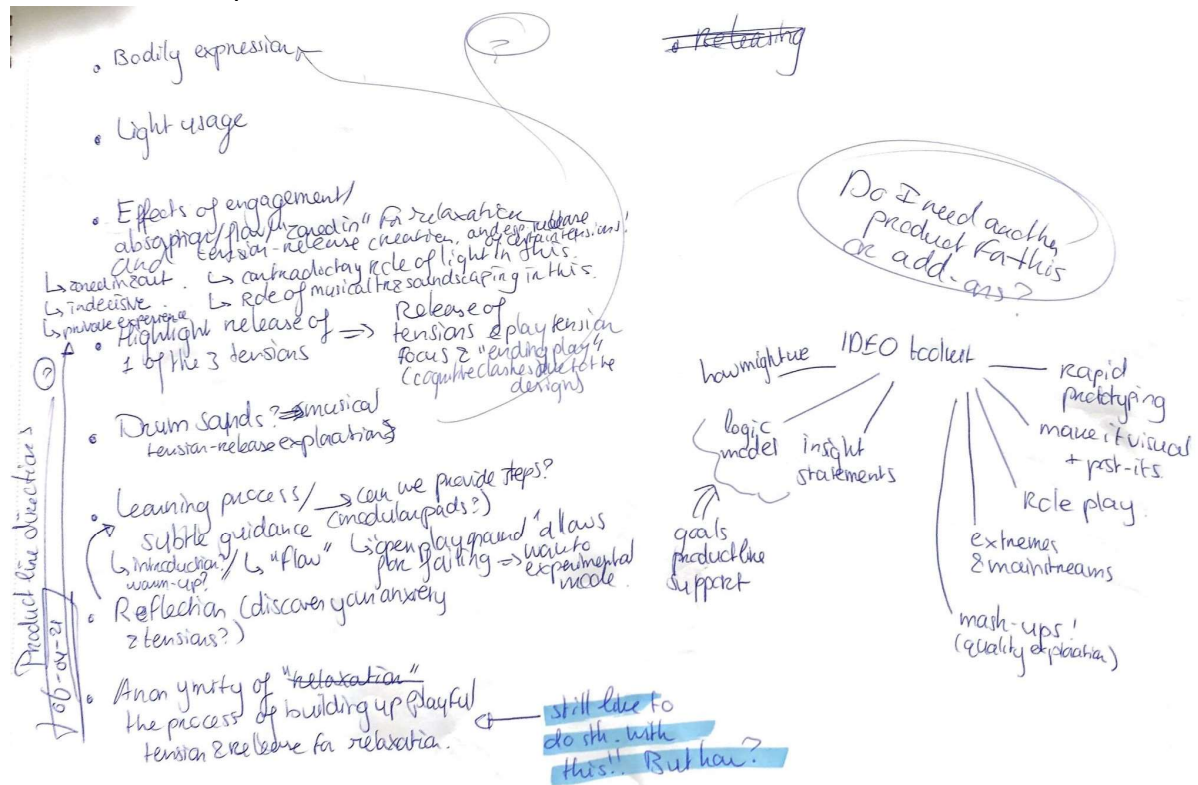 Product line directions
06-04-21
?
• Bodily expression
• Light usage
• Effects of engagement/
absorption/flow/"zoned in" for relaxation
and tension-release creation, and esp. release
of certain tensions!
↳ zoned in & out
↳ indecisive
↳ private experience
↳ contradictory role of light in this.
↳ Role of musical & soundscaping in this.
• Highlight release of
1 of the 3 tensions
⇒ Release of
tensions & play tension
focus & "ending play"
(cognitive clashes due to the
designs)
• Drum sounds? musical
tension-release explorations
• Learning process/
subtle guidance
→ can we provide steps?
(modular pads?)
↳ introduction?/
warm-up?
↳ "flow"
↳ open playground allows
for failing ⇒ way to
experimental
mode.
• Reflection (discover your anxiety
& tensions?)
• Anonymity of "relaxation"
the process of building up playful
tension & release for relaxation.
still like to
do sth. with
this!! But how?
?
• Releasing
Do I need another
product for this
or add-ons?
IDEO toolkit
how might we
logic
model
goals
product line
support
insight
statements
Rapid
prototyping
make it visual
+ post-its
Role play
extremes
& mainstreams
mash-ups!
(quality exploration)